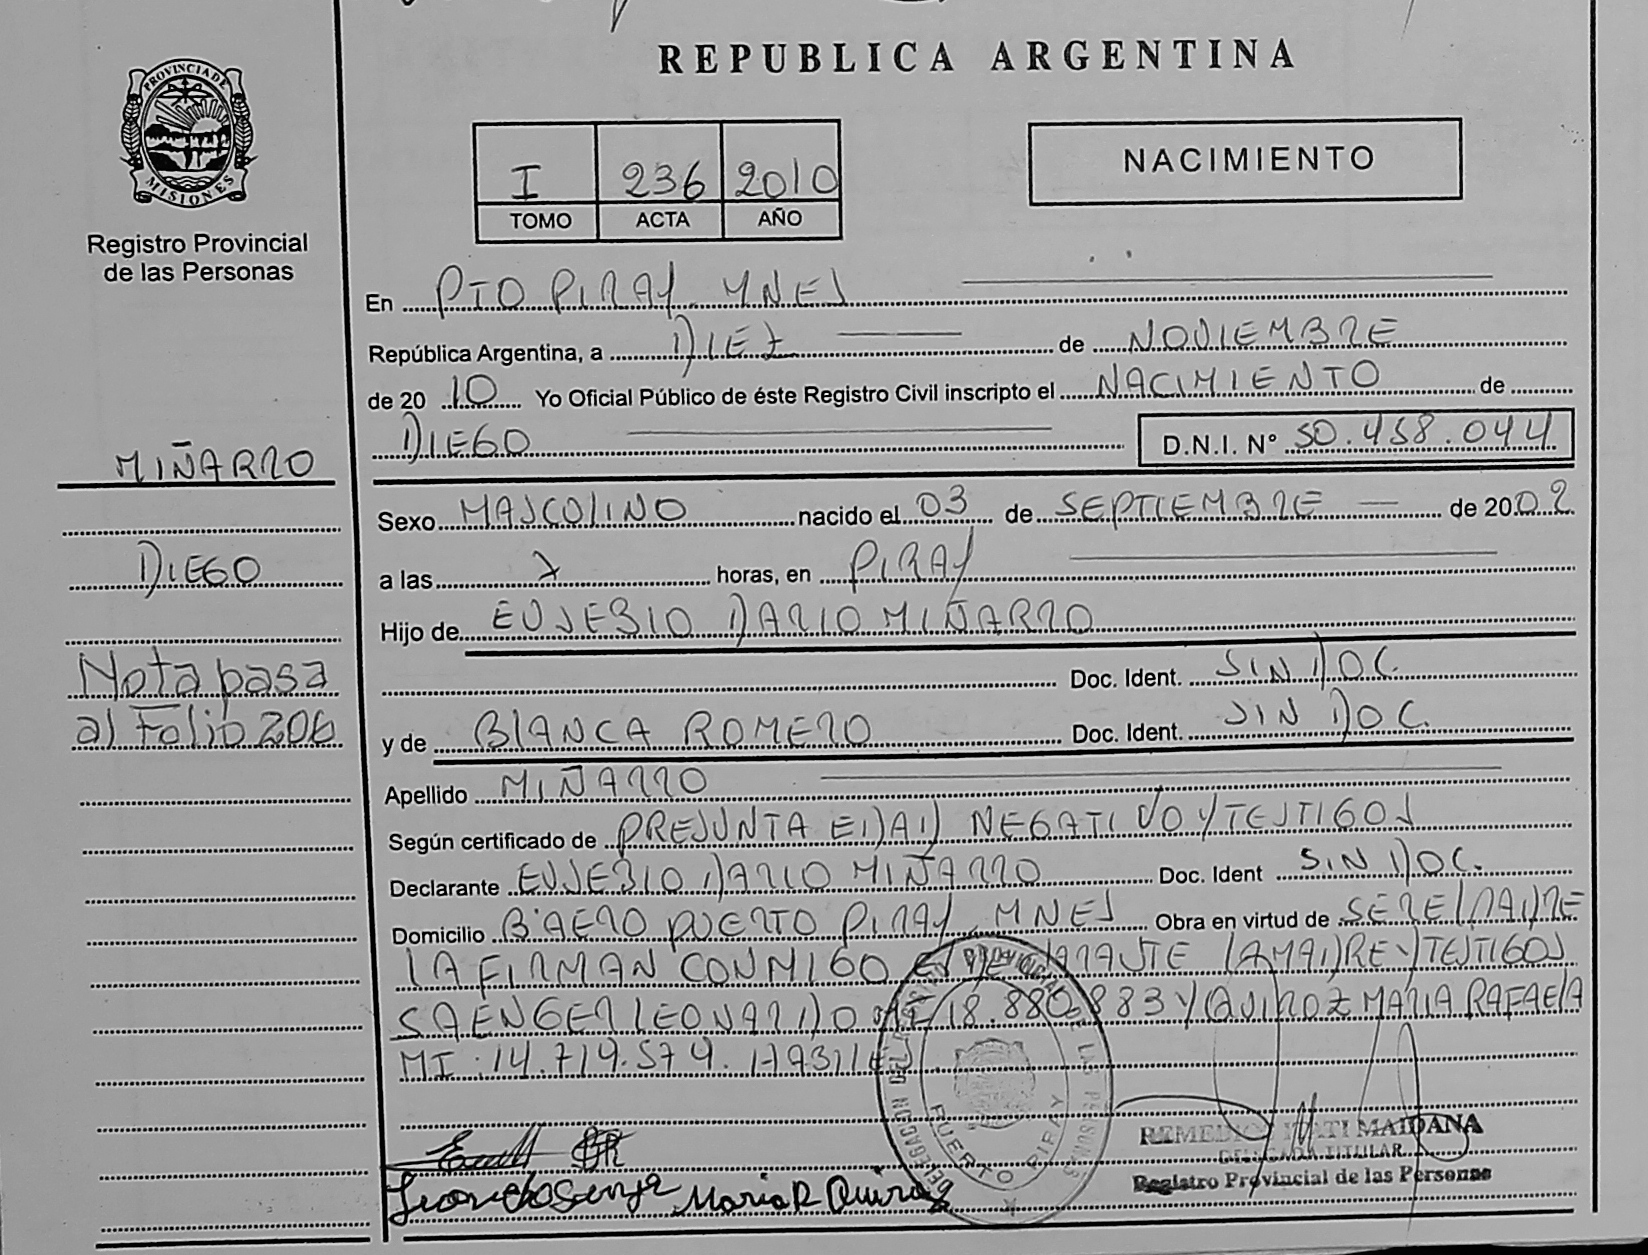 REPUBLICA ARGENTINA
PROVINCIA DE
MISIONES
Registro Provincial
de las Personas
I 236 2010
TOMO ACTA AÑO
NACIMIENTO
En PTO PIRAY MNES
República Argentina, a DIEZ de NOVIEMBRE
de 2010 Yo Oficial Público de éste Registro Civil inscripto el NACIMIENTO de
DIEGO D.N.I. Nº 50.458.044
MIÑARRO
Sexo MASCULINO nacido el 03 de SEPTIEMBRE de 2002
DIEGO
a las 7 horas, en PIRAY
Hijo de EUSEBIO DARIO MIÑARRO
Doc. Ident. SIN DOC.
Nota pasa
al Folio 206
y de BLANCA ROMERO Doc. Ident. SIN DOC.
Apellido MIÑARRO
Según certificado de PRESUNTA EDAD NEGATIVO Y TESTIGOS
Declarante EUSEBIO DARIO MIÑARRO Doc. Ident SIN DOC.
Domicilio Bº AERO PUERTO PIRAY MNES Obra en virtud de SER EL PADRE
LA FIRMAN CONMIGO EL DECLARANTE LA MADRE Y TESTIGOS
SAENGER LEONARDO MI 18.880.883 Y QUIROZ MARIA RAFAELA
MI: 14.719.574.
PUERTO PIRAY
MAIDANA
DELEGADA TITULAR
Registro Provincial de las Personas
Maria R Quiroz